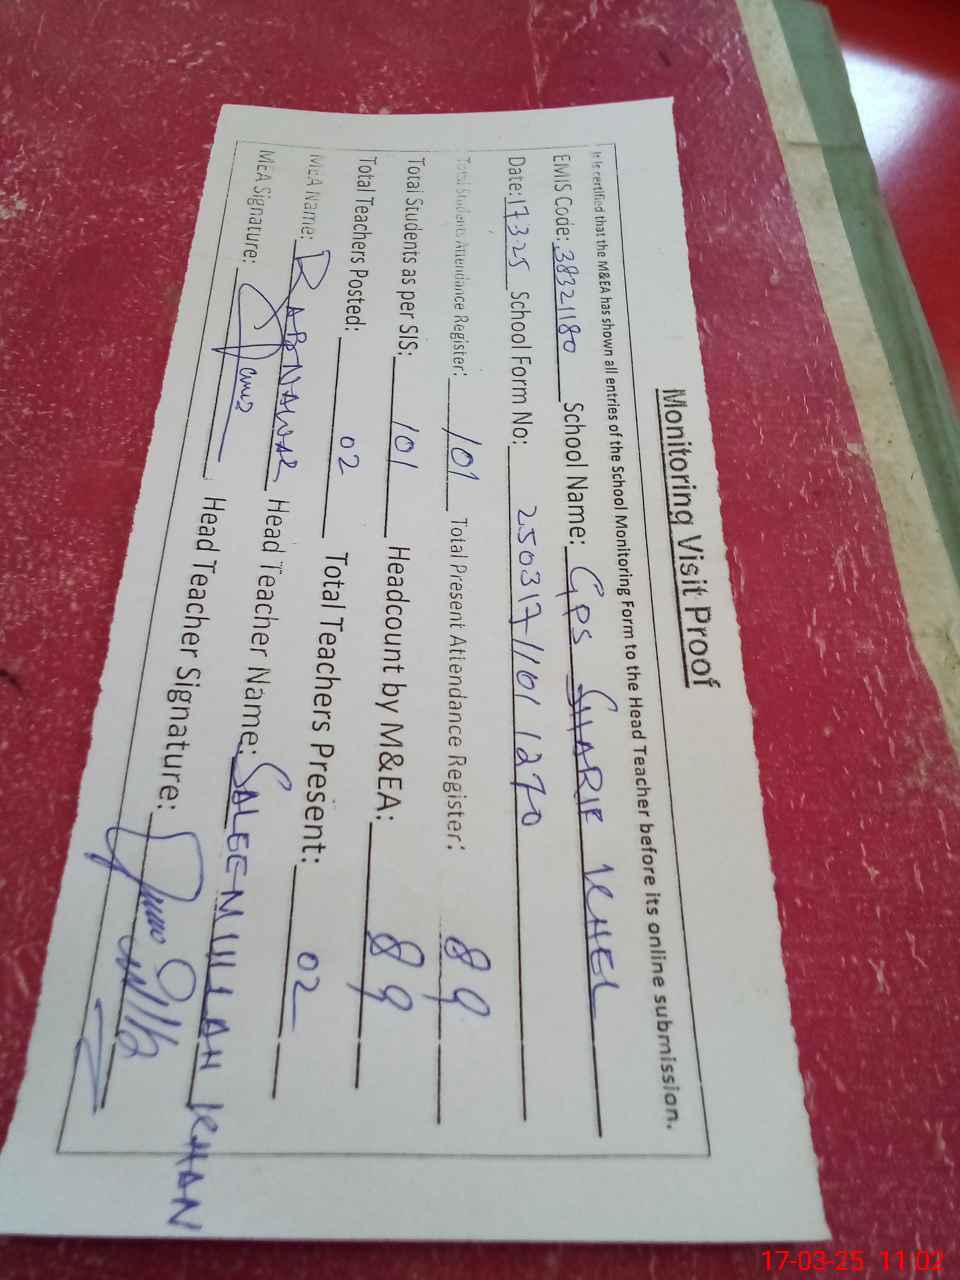 Monitoring Visit Proof
It is certified that the M&EA has shown all entries of the School Monitoring Form to the Head Teacher before its online submission.
EMIS Code: 38321180 School Name: GPS SHARIF KHEL
Date: 17.3.25 School Form No: 250317/1101 1270
Total Students Attendance Register: 101 Total Present Attendance Register: 89
Total Students as per SIS: 101 Headcount by M&EA: 89
Total Teachers Posted: 02 Total Teachers Present: 02
MEA Name: RABNAWAZ Head Teacher Name: SALEEMULLAH KHAN
MEA Signature: Head Teacher Signature:
17-03-25 11:02